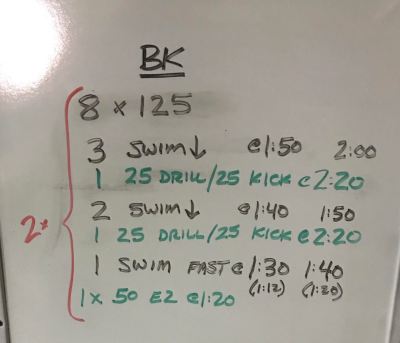 BK
8 x 125
3 SWIM↓ @1:50 2:00
1 25 DRILL/25 KICK @2:20
2 SWIM↓ @1:40 1:50
2x
1 25 DRILL/25 KICK @2:20
1 SWIM FAST @1:30 1:40
(1:12) (1:20)
1x 50 EZ @1:20